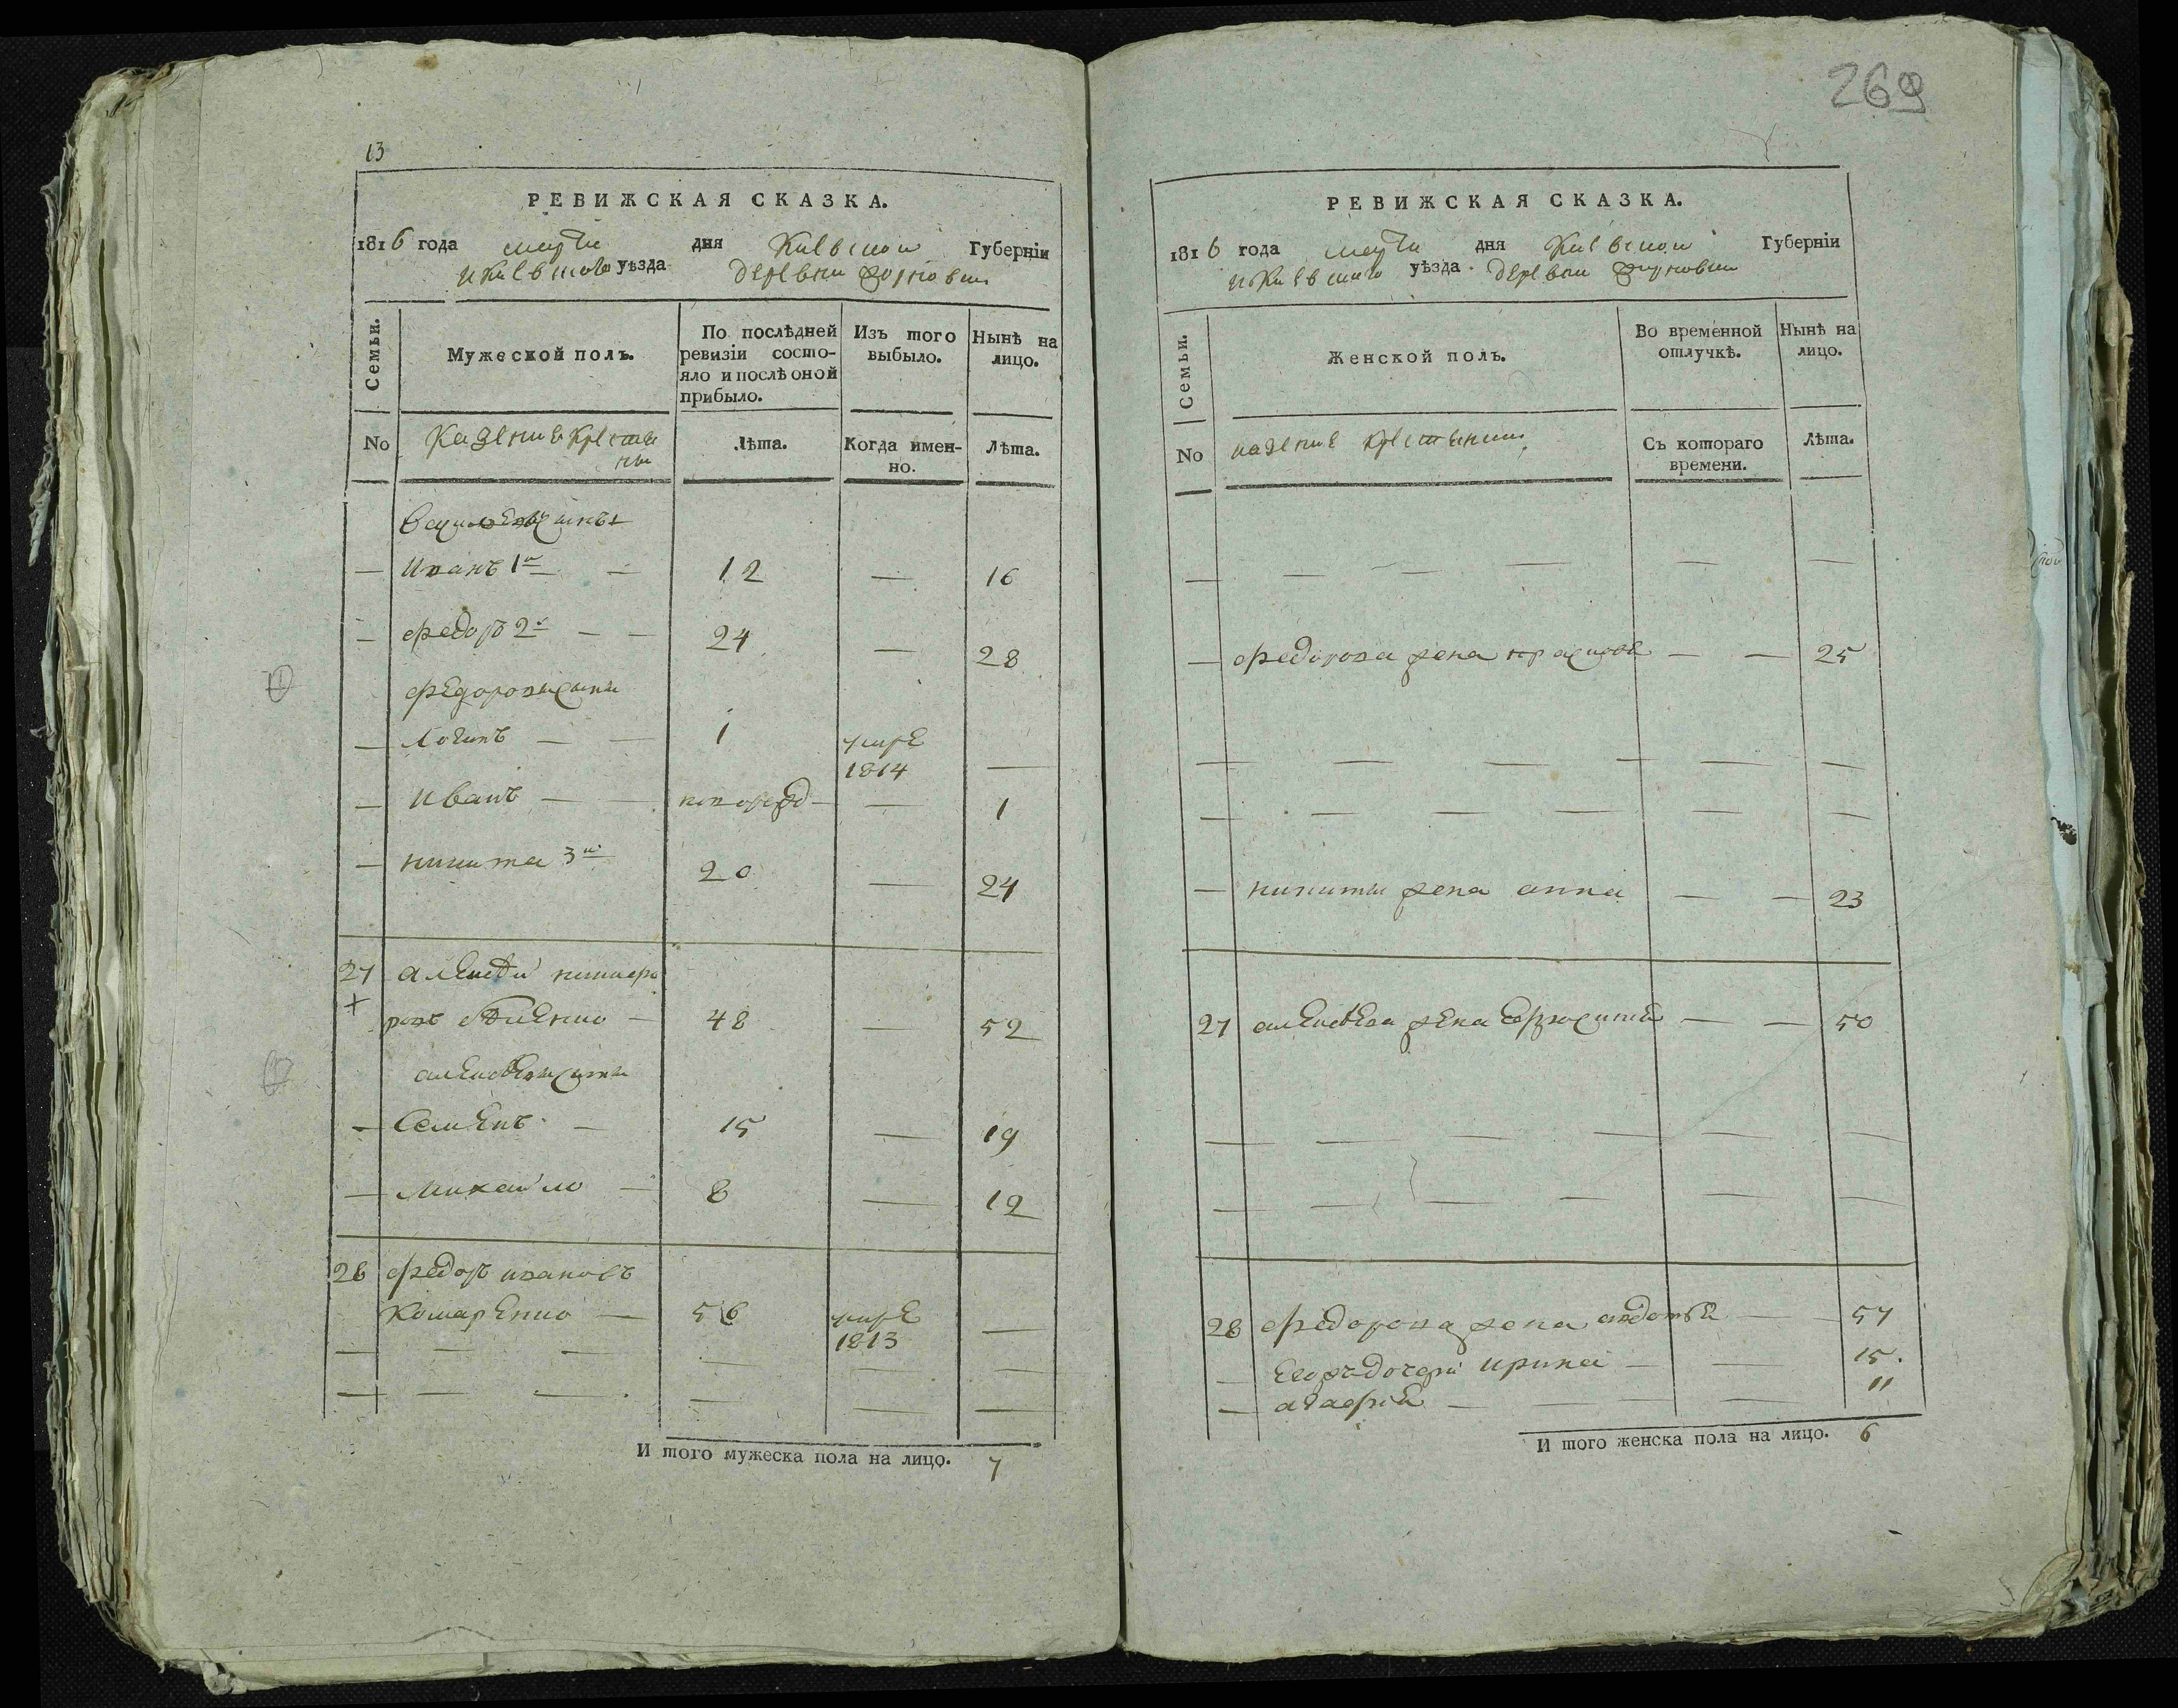 13
РЕВИЖСКАЯ СКАЗКА.
1816 года марта дня Киевской Губерніи
и Киевского уѣзда деревни
Семьи.
Мужеской полъ.
По послѣдней ревизіи состо-
яло и послѣ оной
прибыло.
Изъ того
выбыло.
Нынѣ на
лицо.
No
Казенние крестья
ни
Лѣта.
Когда имен-
но.
Лѣта.
сины
Иванъ 1й 12 — 16
Федоръ 2й 24 — 28
Федоровы сыны
Логинъ 1 умре
1814 —
Иванъ новорожд — 1
никита 3й 20 — 24
27 алексѣй никифо
ровъ 48 — 52
алексѣевы сыны
Семенъ 15 — 19
Михайло 8 — 12
28 Федоръ ивановъ
Комаренко 56 умре
1813 —
И того мужеска пола на лицо. 7
269
РЕВИЖСКАЯ СКАЗКА.
1816 года марта дня Киевской Губерніи
и Киевского уѣзда деревни
Семьи.
Женской полъ.
Во временной
отлучкѣ.
Нынѣ на
лицо.
No
казение крестянки
Съ котораго
времени.
Лѣта.
Федорова жена 25
никиты жена анна 23
27 алексѣева жена ефросинія 50
28 Федорова жена авдотья 57
Егожъ дочери ирина 15
агафія 11
И того женска пола на лицо. 6